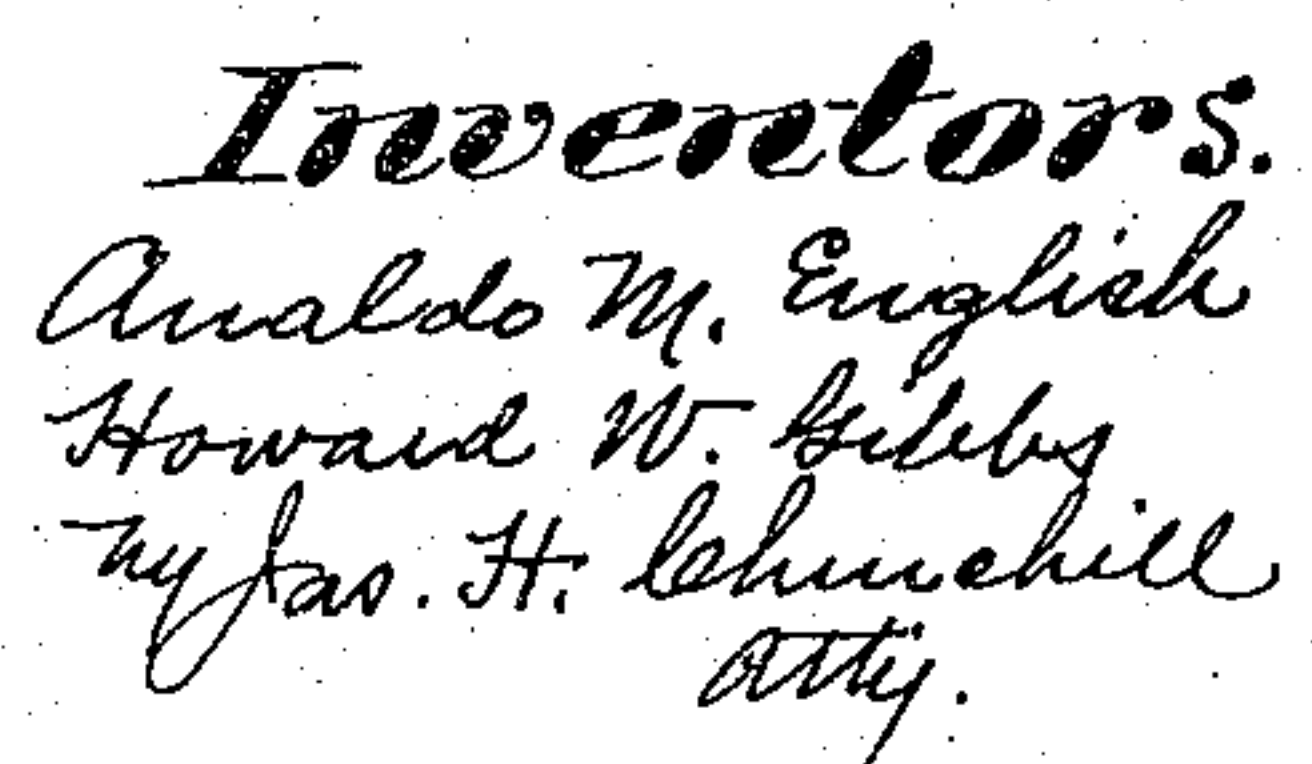 Inventors.
Analdo M. English
Howard W. Gibbs
by Jas. H. Churchill
Atty.